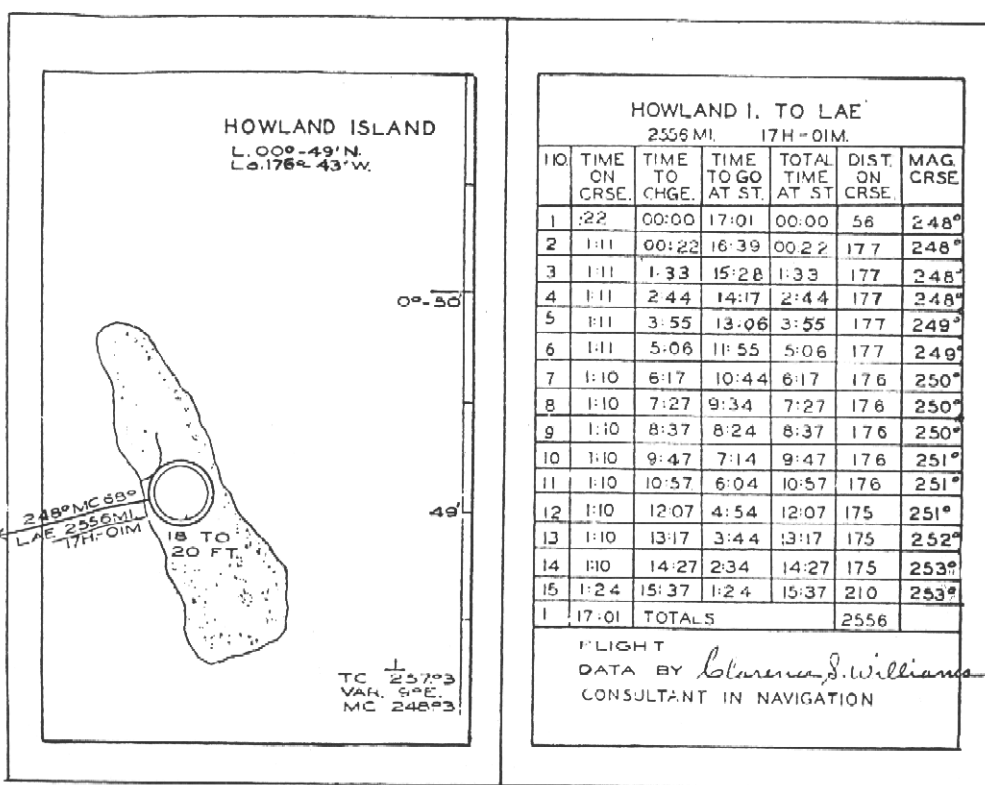 HOWLAND ISLAND
L. 00°-49'N.
Lo. 176°-43'W.
0°-50'
49'
248° MC 68°
LAE 2556 MI.
17H-01M
18 TO
20 FT.
1
TC 257°3
VAR. 9°E.
MC 248°3
HOWLAND I. TO LAE
2556 MI. 17H-01M.
NO. TIME ON CRSE. TIME TO CHGE. TIME TO GO AT ST. TOTAL TIME AT ST DIST. ON CRSE. MAG. CRSE
1 :22 00:00 17:01 00:00 56 248°
2 1:11 00:22 16:39 00:22 177 248°
3 1:11 1:33 15:28 1:33 177 248°
4 1:11 2:44 14:17 2:44 177 248°
5 1:11 3:55 13:06 3:55 177 249°
6 1:11 5:06 11:55 5:06 177 249°
7 1:10 6:17 10:44 6:17 176 250°
8 1:10 7:27 9:34 7:27 176 250°
9 1:10 8:37 8:24 8:37 176 250°
10 1:10 9:47 7:14 9:47 176 251°
11 1:10 10:57 6:04 10:57 176 251°
12 1:10 12:07 4:54 12:07 175 251°
13 1:10 13:17 3:44 13:17 175 252°
14 1:10 14:27 2:34 14:27 175 253°
15 1:24 15:37 1:24 15:37 210 253°
1 17:01 TOTALS 2556
FLIGHT
DATA BY Clarence S. Williams
CONSULTANT IN NAVIGATION